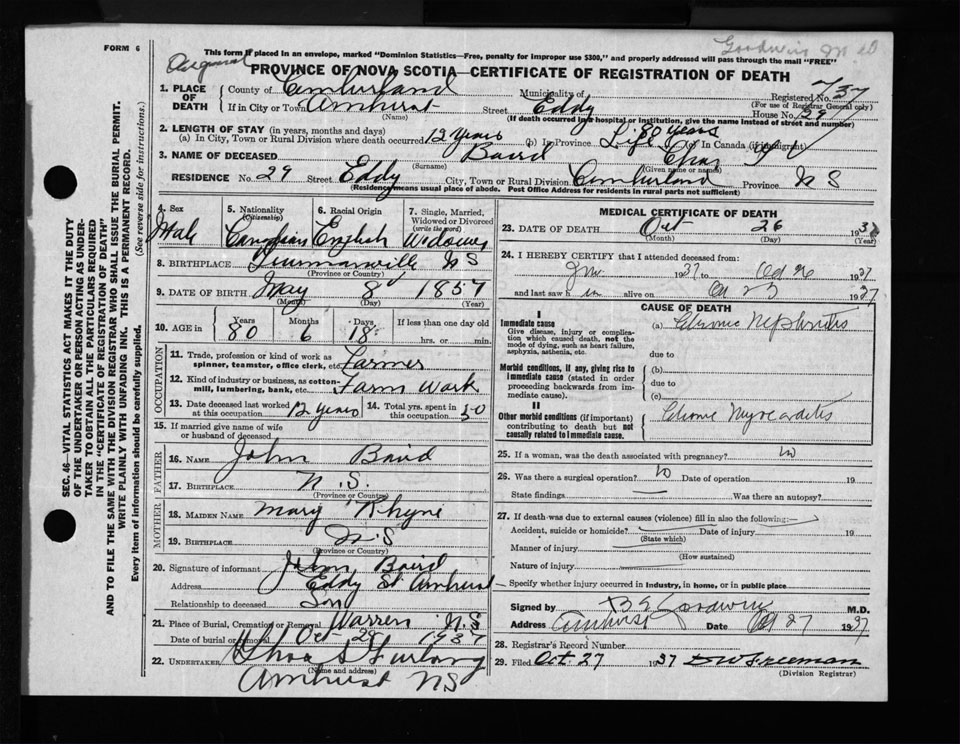 Goodwin M D
FORM 6
This form if placed in an envelope, marked "Dominion Statistics—Free, penalty for improper use $300," and properly addressed will pass through the mail "FREE"
PROVINCE OF NOVA SCOTIA—CERTIFICATE OF REGISTRATION OF DEATH
1. PLACE OF DEATH
County of Cumberland Municipality of Registered No. 737
(For use of Registrar General only)
If in City or Town Amherst Street Eddy House No. 29
(Name) (If death occurred in a hospital or institution, give the name instead of street and number)
2. LENGTH OF STAY (in years, months and days)
(a) In City, Town or Rural Division where death occurred 12 Years (b) In Province Life 80 years (c) In Canada (if immigrant)
3. NAME OF DECEASED Baird Chas
(Surname) (Given name or names)
RESIDENCE No. 29 Street Eddy City, Town or Rural Division Cumberland Province N S
(Residence means usual place of abode. Post Office Address for residents in rural parts not sufficient)
4. Sex Male
5. Nationality (Citizenship) Canadian
6. Racial Origin English
7. Single, Married, Widowed or Divorced (write the word) Widower
8. BIRTHPLACE N S
(Province or Country)
9. DATE OF BIRTH May 8 1857
(Month) (Day) (Year)
10. AGE in Years 80 Months 6 Days 18 If less than one day old hrs. or min.
OCCUPATION
11. Trade, profession or kind of work as spinner, teamster, office clerk, etc. Farmer
12. Kind of industry or business, as cotton-mill, lumbering, bank, etc. Farm Work
13. Date deceased last worked at this occupation 12 years 14. Total yrs. spent in this occupation 50
15. If married give name of wife or husband of deceased
FATHER
16. NAME John Baird
17. BIRTHPLACE N.S.
(Province or Country)
MOTHER
18. MAIDEN NAME Mary Rhyne
19. BIRTHPLACE N.S
(Province or Country)
20. Signature of informant John Baird
Address Eddy St Amherst
Relationship to deceased Son
21. Place of Burial, Cremation or Removal Warren N.S
Date of burial or removal Oct 28 1937
22. UNDERTAKER Furlong
(Name and address)
Amherst NS
MEDICAL CERTIFICATE OF DEATH
23. DATE OF DEATH Oct 26 1937
(Month) (Day) (Year)
24. I HEREBY CERTIFY that I attended deceased from:
Jan 1937 to Oct 26 1937
and last saw h im alive on Oct 23 1937
CAUSE OF DEATH
I
Immediate cause
Give disease, injury or complication which caused death, not the mode of dying, such as heart failure, asphyxia, asthenia, etc.
(a) Chronic Nephritis
due to
Morbid conditions, if any, giving rise to immediate cause (stated in order proceeding backwards from immediate cause).
(b)
due to
(c)
II
Other morbid conditions (if important) contributing to death but not causally related to immediate cause.
Chronic Myocarditis
25. If a woman, was the death associated with pregnancy? no
26. Was there a surgical operation? no Date of operation 19
State findings Was there an autopsy?
27. If death was due to external causes (violence) fill in also the following:—
Accident, suicide or homicide? Date of injury 19
(State which)
Manner of injury
(How sustained)
Nature of injury
Specify whether injury occurred in industry, in home, or in public place
Signed by Goodwin M.D.
Address Amherst Date Oct 27 1937
28. Registrar's Record Number
29. Filed Oct. 27 1937 DW Freeman
(Division Registrar)
SEC. 46—VITAL STATISTICS ACT MAKES IT THE DUTY
OF THE UNDERTAKER OR PERSON ACTING AS UNDER-
TAKER TO OBTAIN ALL THE PARTICULARS REQUIRED
IN THE "CERTIFICATE OF REGISTRATION OF DEATH"
AND TO FILE THE SAME WITH THE DIVISION REGISTRAR WHO SHALL ISSUE THE BURIAL PERMIT.
WRITE PLAINLY WITH UNFADING INK. THIS IS A PERMANENT RECORD.
Every item of information should be carefully supplied. (See reverse side for instructions.)